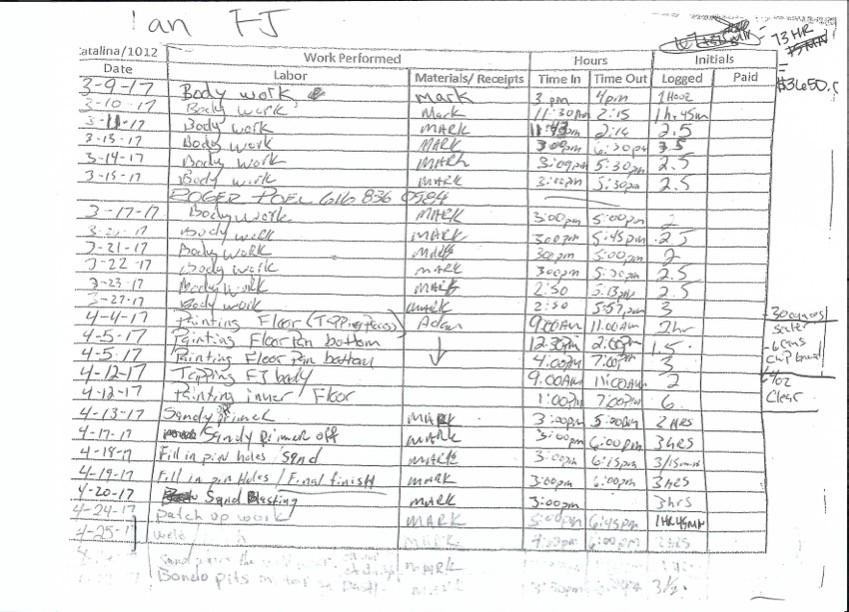 Ian FJ
73 HR
$3650.
Catalina/1012 Work Performed Hours Initials
Date Labor Materials/Receipts Time In Time Out Logged Paid
3-9-17 Body work Mark 3 pm 4pm 1 Hour
3-10-17 Body work Mark 11:30am 2:15 1h.45m
3-11-17 Body work MARK 2:14 2.5
3-13-17 Body work MARK 3:00pm 6:30pm 3.5
3-14-17 Body work MARK 3:09pm 5:30pm 2.5
3-15-17 Body work MARK 5:30pm 2.5
ROGER POEL 616 836 0584
3-17-17 Body work MARK 3:00pm 5:00pm 2
Body work MARK 3:00pm 5:45pm 2.5
3-21-17 Body work MARK 3:00pm 5:00pm 2
3-22-17 Body work MARK 3:00pm 5:30pm 2.5
3-23-17 Body work MARK 2:50 5:13pm 2.5
3-27-17 Body work MARK 2:50 5:57pm 3
4-4-17 Painting Floor Adam 9:00AM 11:00AM 2hr
4-5-17 Painting Floor Pan bottom 12:30pm 2:00pm 1.5
4-5-17 Painting Floor Pan bottom 4:00pm 7:00pm 3
4-12-17 Tapping FJ body 9:00AM 11:00AM 2
4-12-17 Painting inner Floor 1:00pm 7:00pm 6
Clear
4-13-17 Sandy primer MARK 3:00pm 5:00pm 2 HRS
4-17-17 Sandy primer off MARK 3:00pm 6:00pm 3 HRS
4-18-17 Fill in pin holes / Sand MARK 3:00pm 6:15pm 3/15min
4-19-17 Fill in pin Holes / Final finish MARK 3:00pm 6:00pm 3 HRS
4-20-17 Sand Blasting MARK 3:00pm 3hrs
4-24-17 Patch up work MARK 5:00pm 6:45pm 1HR 45MN
4-25-17 Weld MARK 6:00pm
MARK
Bondo pits MARK 3½